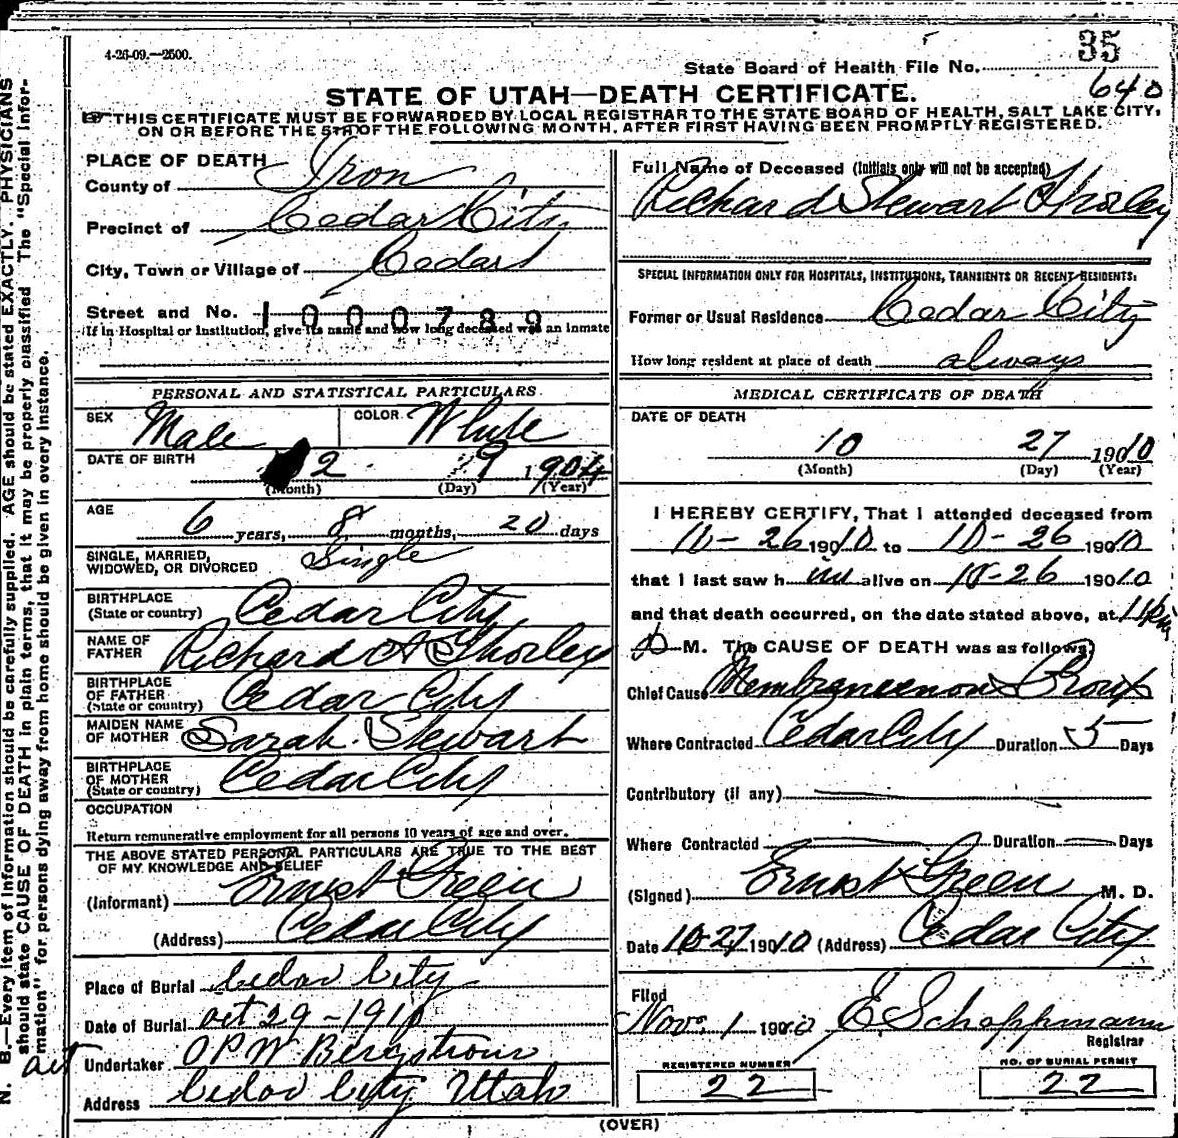 4-26-09.—2500.
35
State Board of Health File No.
640
STATE OF UTAH—DEATH CERTIFICATE.
THIS CERTIFICATE MUST BE FORWARDED BY LOCAL REGISTRAR TO THE STATE BOARD OF HEALTH, SALT LAKE CITY,
ON OR BEFORE THE 5TH OF THE FOLLOWING MONTH, AFTER FIRST HAVING BEEN PROMPTLY REGISTERED.
PLACE OF DEATH
County of Iron
Precinct of Cedar City
City, Town or Village of Cedar
Street and No. 1000789
If in Hospital or Institution, give its name and how long deceased was an inmate
PERSONAL AND STATISTICAL PARTICULARS.
SEX Male COLOR White
DATE OF BIRTH 2 9 1904
(Month) (Day) (Year)
AGE 6 years, 8 months, 20 days
SINGLE, MARRIED,
WIDOWED, OR DIVORCED Single
BIRTHPLACE
(State or country) Cedar City
NAME OF
FATHER Richard A Thorley
BIRTHPLACE
OF FATHER
(State or country) Cedar City
MAIDEN NAME
OF MOTHER Sarah Stewart
BIRTHPLACE
OF MOTHER
(State or country) Cedar City
OCCUPATION
Return remunerative employment for all persons 10 years of age and over.
THE ABOVE STATED PERSONAL PARTICULARS ARE TRUE TO THE BEST
OF MY KNOWLEDGE AND BELIEF
(Informant) Ernest Green
(Address) Cedar City
Place of Burial Cedar City
Date of Burial Oct 29-1910
Undertaker O P W Bergstrom
Address Cedar City Utah
Full Name of Deceased (Initials only will not be accepted)
Richard Stewart Thorley
SPECIAL INFORMATION ONLY FOR HOSPITALS, INSTITUTIONS, TRANSIENTS OR RECENT RESIDENTS:
Former or Usual Residence Cedar City
How long resident at place of death always
MEDICAL CERTIFICATE OF DEATH
DATE OF DEATH
10 27 1910
(Month) (Day) (Year)
I HEREBY CERTIFY, That I attended deceased from
10-26 1910 to 10-26 1910
that I last saw him alive on 10-26 1910
and that death occurred, on the date stated above, at 11
P M. The CAUSE OF DEATH was as follows:
Chief Cause Membraneenous Croup
Where Contracted Cedar City Duration 5 Days
Contributory (if any)
Where Contracted Duration Days
(Signed) Ernest Green M. D.
Date 10-27 1910 (Address) Cedar City
Filed
Nov. 1 1910 E Schoppmann
Registrar
REGISTERED NUMBER
22
NO. OF BURIAL PERMIT
22
(OVER)
N. B.—Every item of information should be carefully supplied. AGE should be stated EXACTLY. PHYSICIANS
should state CAUSE OF DEATH in plain terms, that it may be properly classified. The "Special Infor-
mation" for persons dying away from home should be given in every instance.